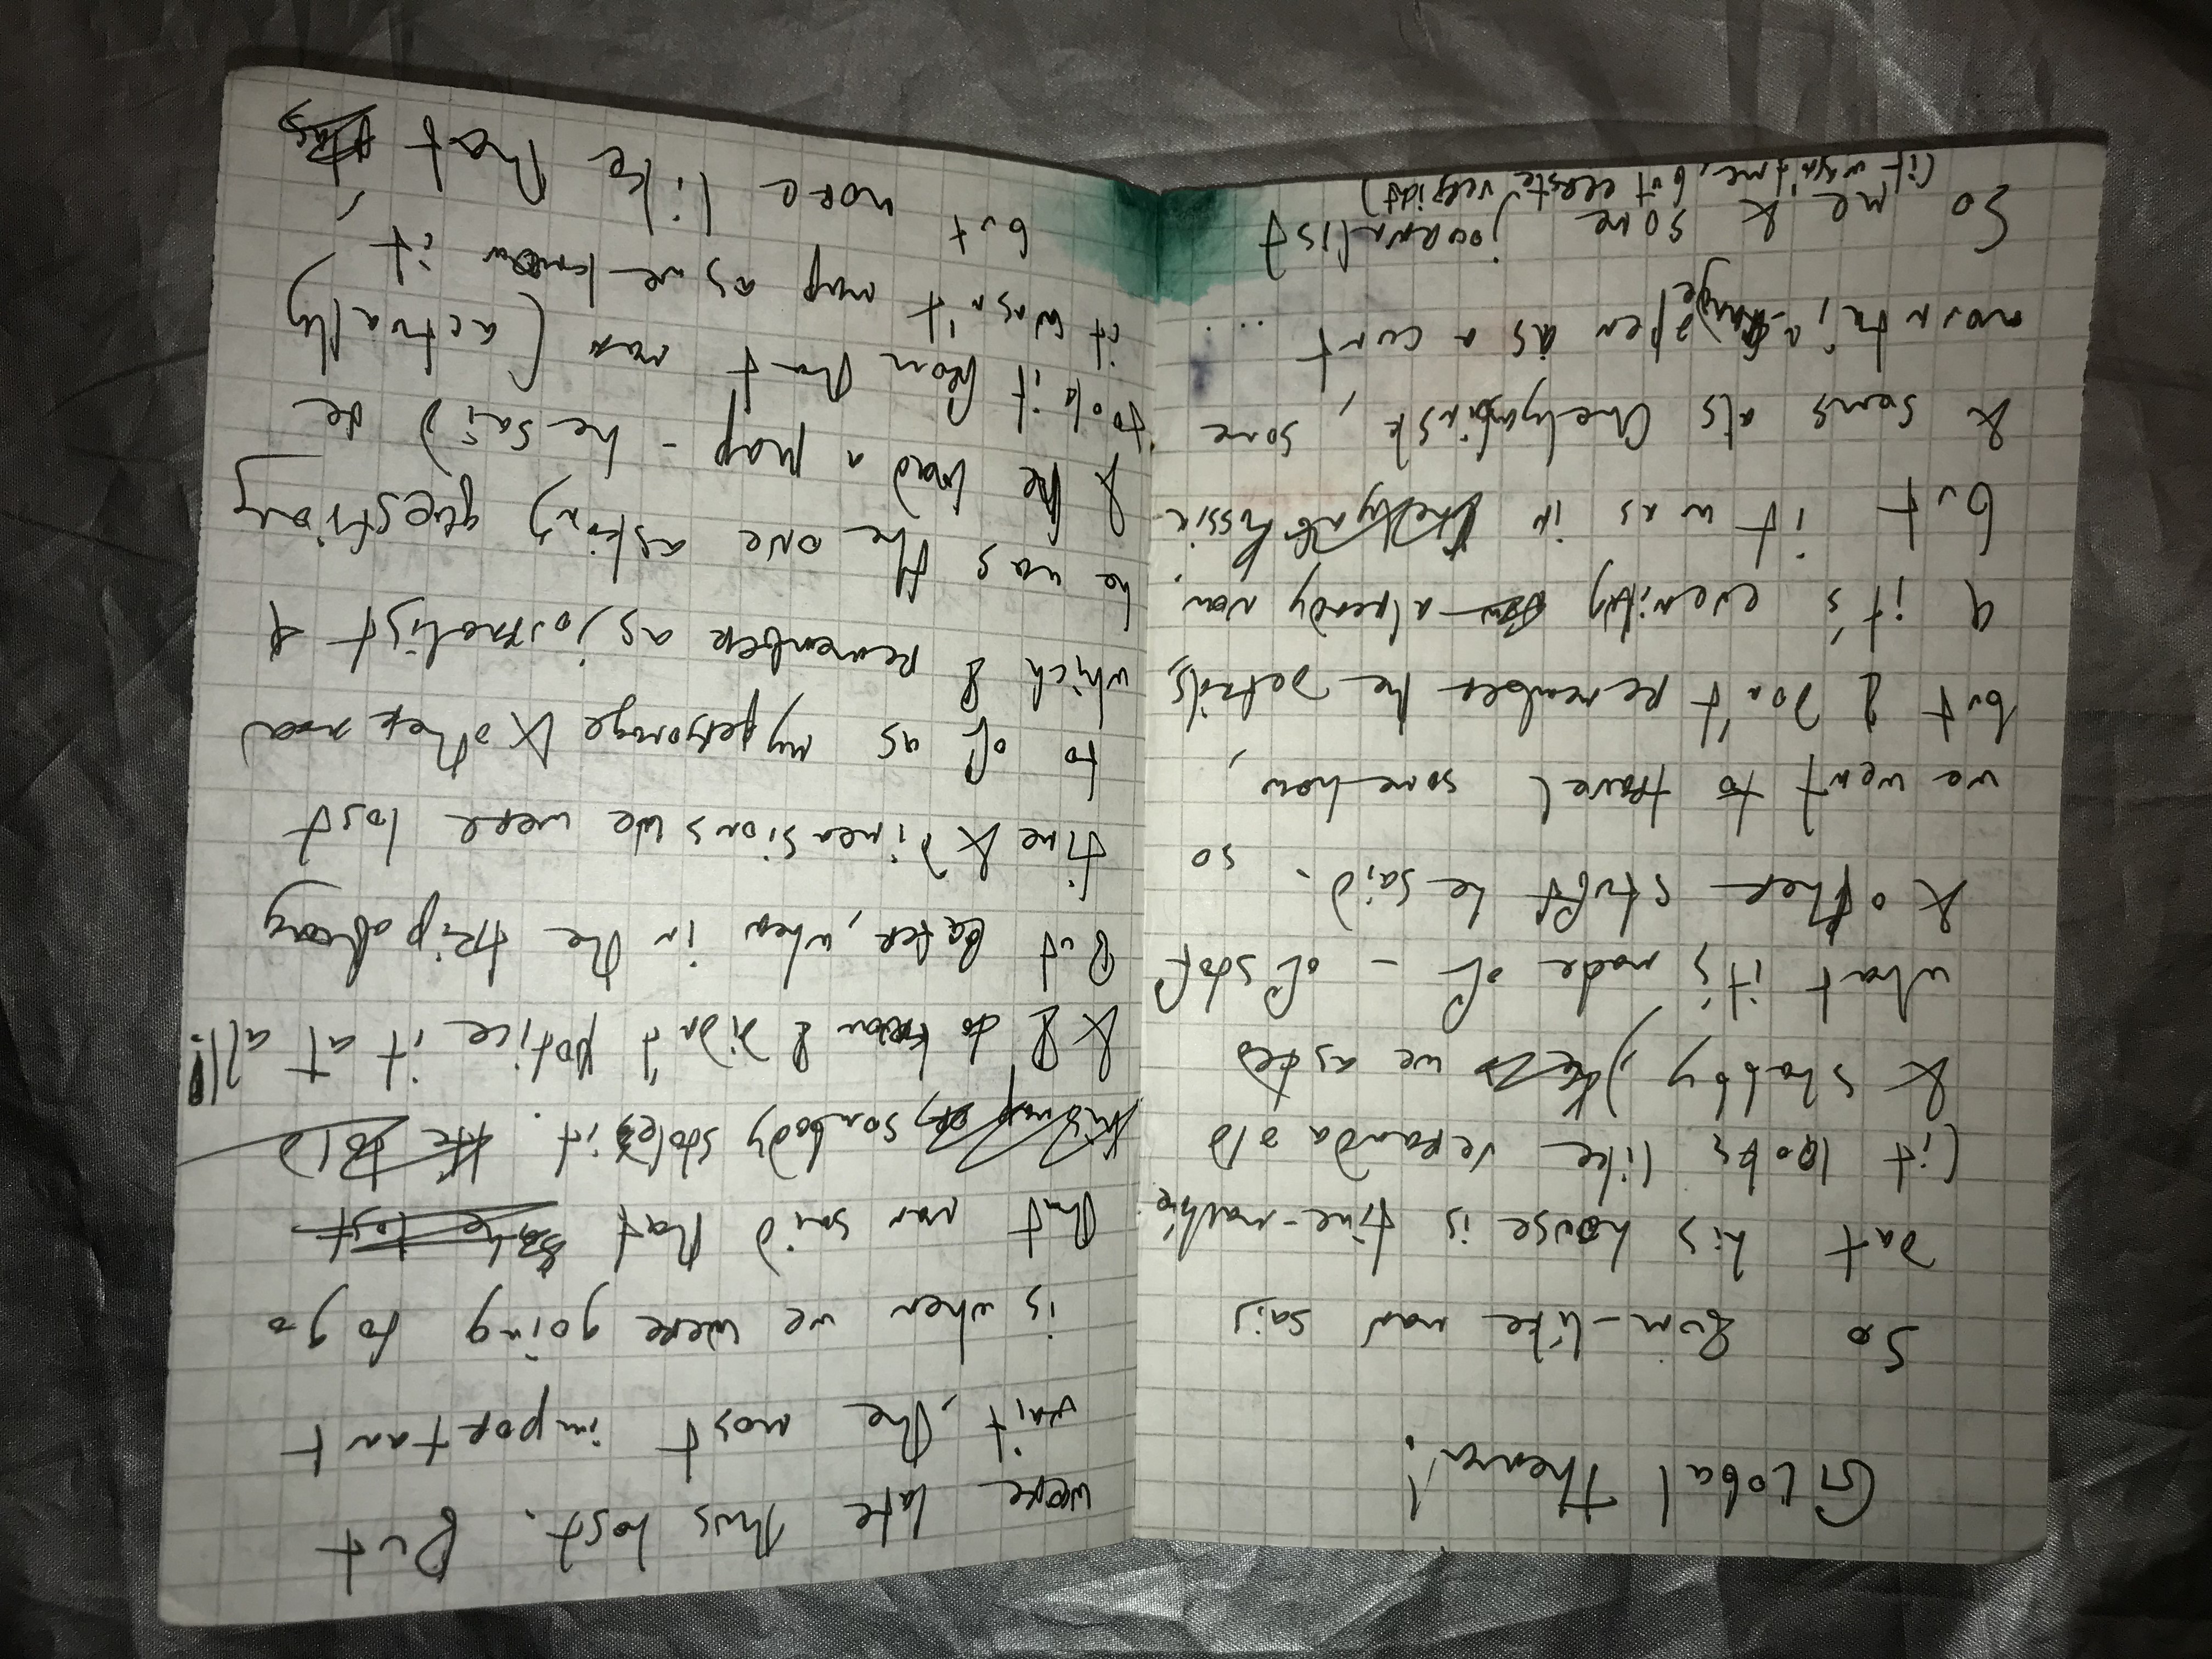 Global Thema!
So bum-like man said
dat his house is time-machine
(it looks like veranda old
& shabby,) we asked
what it's made of - of stof
& other stuff he said. so
we went to travel somehow,
but I don't remember the details,
a it's evening already now.
but it was in Russia
& soms als Chelyabinsk, some
mountain-range open as a cunt ...
So me & some journalist
(it wasn't me, but eerste verzicht)
were late thus lost. But
wait, the most important
is when we were going to go
that man said that she lost
his map or sombody stole it. He told
& I do know I didn't notice it at all!
But later, when in the trip along
time & dimensions we were lost
to of as my personage & other man
which I remember as journalist &
he was the one asking questions
& he had a map - he said he
took it from that man (actually
it wasn't map as we know it
but more like that